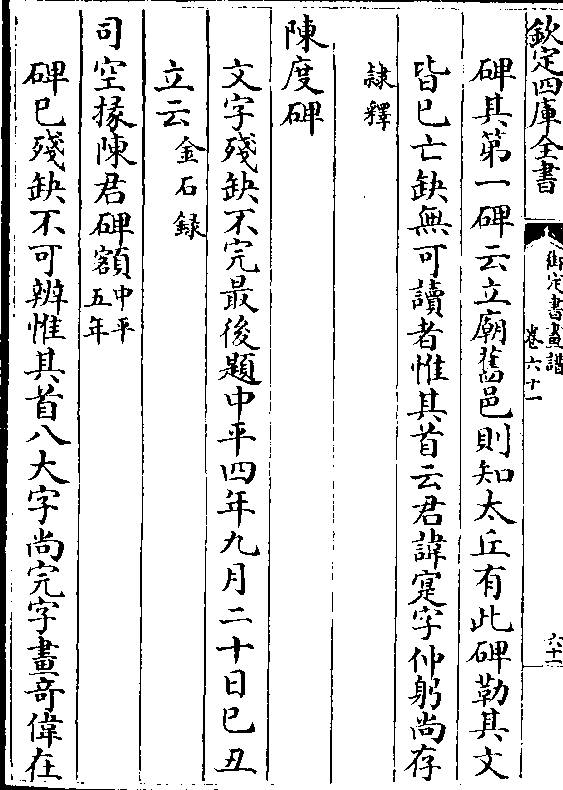 欽定四庫全書
御定書畫譜
卷六十一
六十一
碑其第一碑云立廟舊邑則知太丘有此碑勒其文
皆已亡缺無可讀者惟其首云君諱寔字仲躬尚存
隸釋
陳度碑
文字殘缺不完最後題中平四年九月二十日巳丑
立云金石録
司空掾陳君碑額中平五年
碑已殘缺不可辨惟其首八大字尚完字畫竒偉在